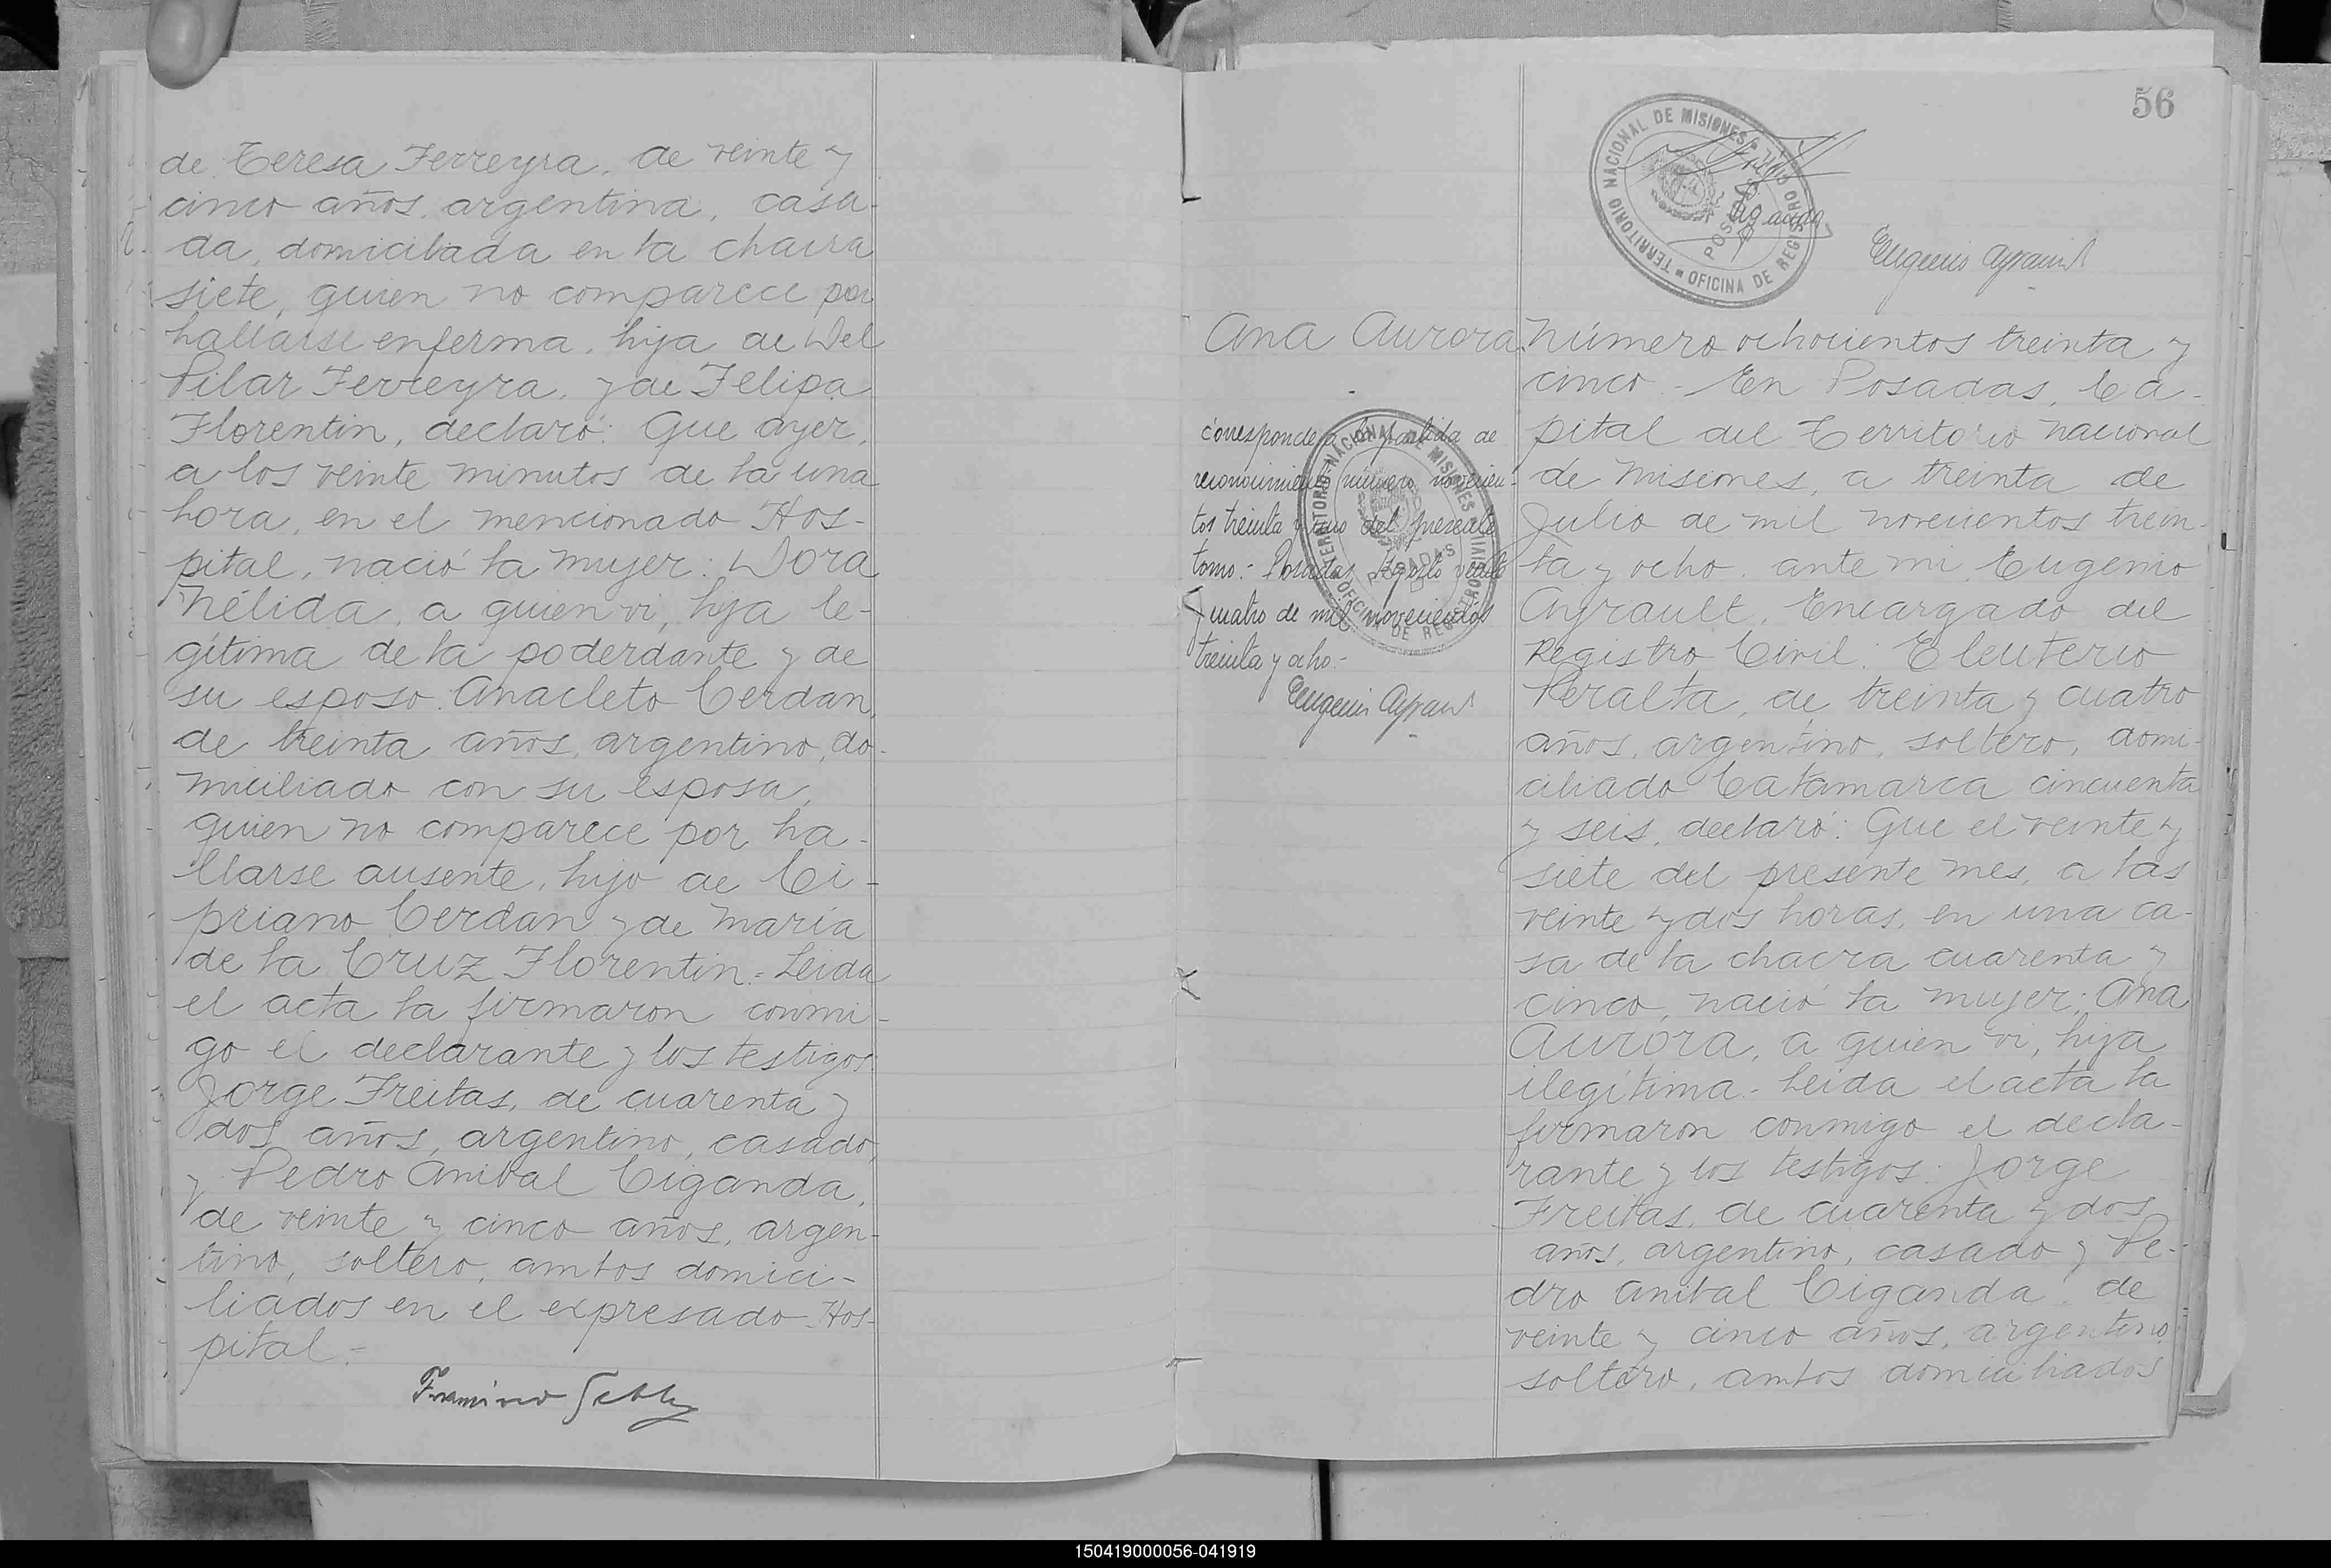 de Teresa Ferreyra, de veinte y
cinco años, argentina, casa-
da, domiciliada en la chacra
siete, quien no comparece por
hallarse enferma, hija de Del
Pilar Ferreyra, y de Felipa
Florentin, declaró: Que ayer,
a los veinte minutos de la una
hora, en el mencionado Hos-
pital, nació la mujer: Dora
Nélida, a quien vi, hija le-
gítima de la poderdante y de
su esposo Anacleto Cerdan,
de treinta años, argentino, do-
miciliado con su esposa,
quien no comparece por ha-
llarse ausente, hijo de Ci-
priano Cerdan y de María
de la Cruz Florentin.- Leida
el acta la firmaron conmi-
go el declarante y los testigos:
Jorge Freitas, de cuarenta y
dos años, argentino, casado,
y Pedro Anibal Ciganda,
de veinte y cinco años, argen-
tino, soltero, ambos domici-
liados en el expresado Hos-
pital.-
56
TERRITORIO NACIONAL DE MISIONES
OFICINA DE REGISTRO CIVIL
POSADAS
Eugenio Ayrault
Ana Aurora
corresponde a la partida de
reconocimiento número novecien-
tos treinta y uno del presente
tomo.- Posadas, Agosto veinte
y cuatro de mil novecientos
treinta y ocho.-
Eugenio Ayrault
TERRITORIO NACIONAL DE MISIONES
OFICINA DE REGISTRO CIVIL
POSADAS
Número ochocientos treinta y
cinco.- En Posadas, Ca-
pital del Territorio Nacional
de Misiones, a treinta de
Julio de mil novecientos trein-
ta y ocho, ante mi, Eugenio
Ayrault, Encargado del
Registro Civil: Eleuterio
Peralta, de treinta y cuatro
años, argentino, soltero, domi-
ciliado Catamarca cincuenta
y seis, declaró: Que el veinte y
siete del presente mes, a las
veinte y dos horas, en una ca-
sa de la chacra cuarenta y
cinco, nació la mujer: Ana
Aurora, a quien vi, hija
ilegítima.- Leida el acta la
firmaron conmigo el decla-
rante y los testigos: Jorge
Freitas, de cuarenta y dos
años, argentino, casado y Pe-
dro Anibal Ciganda de
veinte y cinco años, argentino,
soltero, ambos domiciliados
150419000056-041919